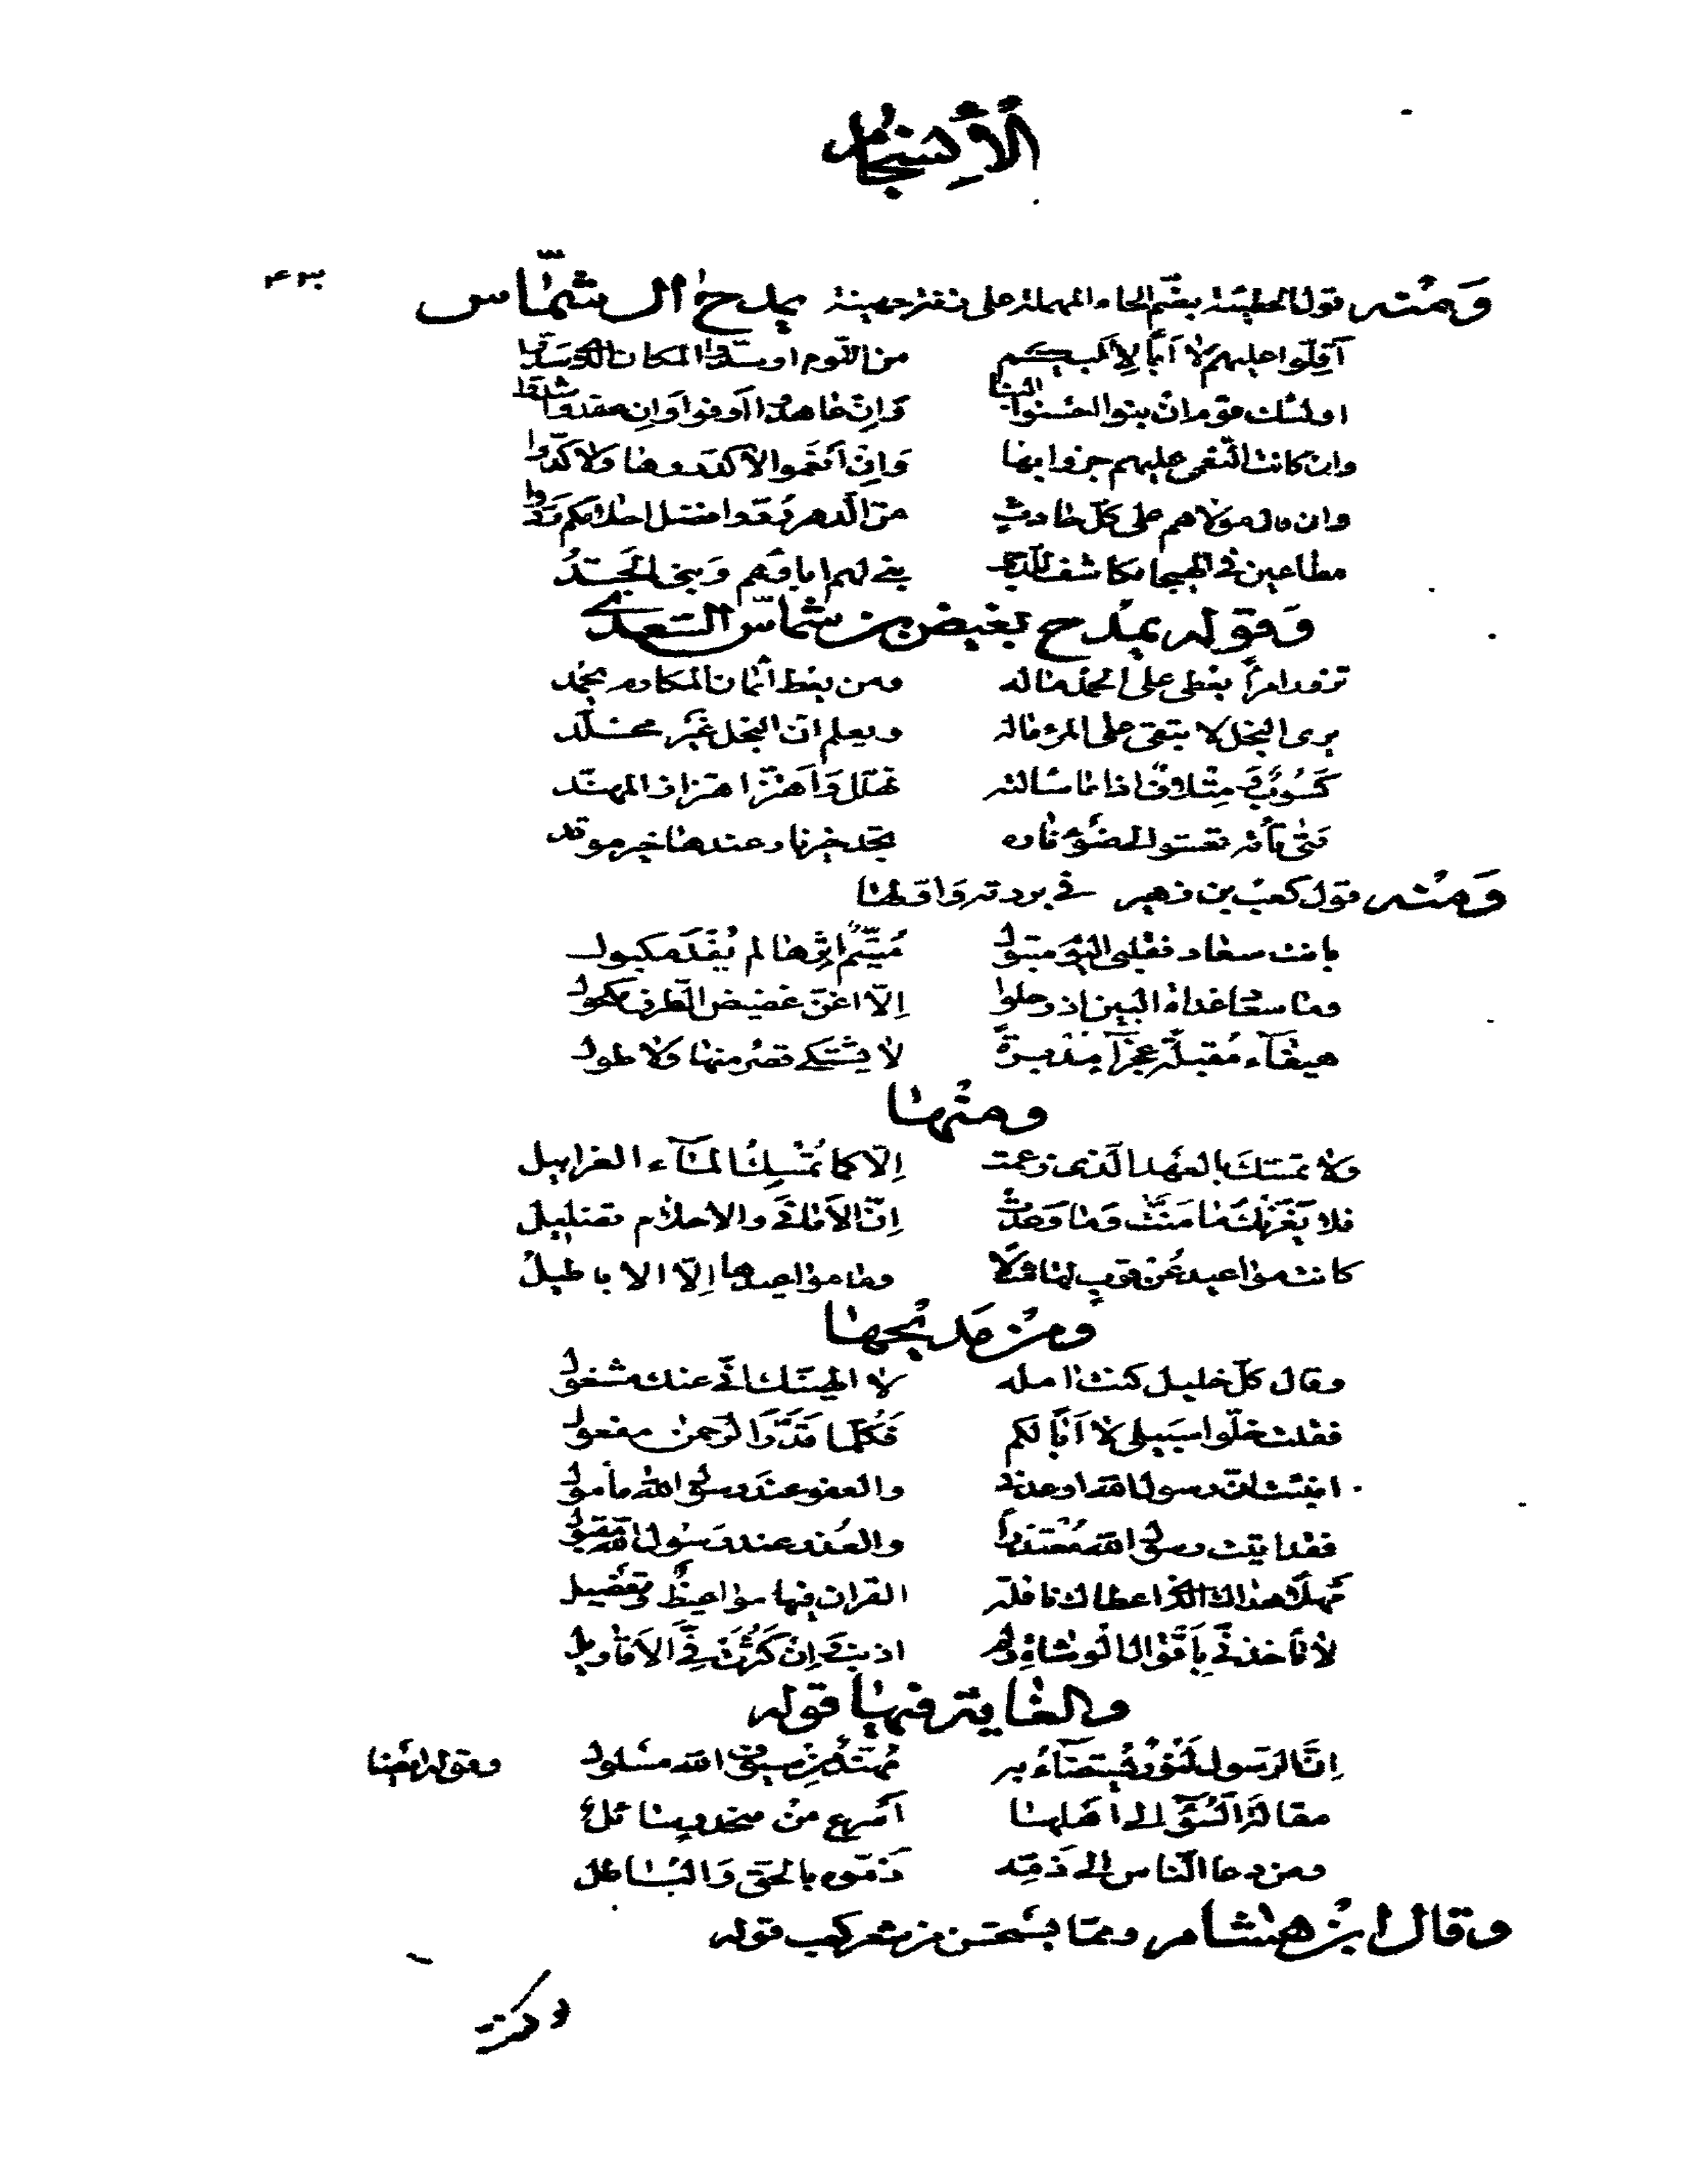 الانسجام
ومنه قول الحطيئة بضم الحاء المهملة على تصغير جهينة يمدح ال شماس
اَقِلّوا عليهم لا اَبًا لِاَبيكم من اللّوم او سدّوا المكان الّذي سَدّوا
اولئك قوم ان بنوا احسنوا البنا وَاِن عاهدوا اَوفوا وَاِن عقدوا شدّوا
وان كانت النّعمى عليهم جزوا بها وَاِن اَنعَموا لا كدّروها ولا كَدّوا
وان قال مولاهم على كلّ حادثٍ من الّدهر رُدّوا فضل احلامكم رَدّوا
مطاعين في الهيجا مكاشيف للدّجى بنى لهم اباؤهم وَبنى الجَدُّ
وَقوله يمدح بغيض بن شماس السّعدي
تزور امرأً يعطي على الحمد ماله ومن يعط اثمان المكارم يحمد
يرى البخل لا يبقى على المرء ماله ويعلم انّ البخل غير مخلّد
كَسُوبٌ وَمِتلافٌ اذا ما سالته تهلّل وَاهتزّ اهتزاز المهنّد
مَتى تأته تعشو الى ضَوْءِ ناره تجد خير نار عندها خير موقد
وَمنه قول كعب بن زهير في بردته وَاوّلها
بانت سعاد فقلبي اليوم متبول مُتَيَّمٌ اِثرها لم يُفْدَ مكبول
وما سعاد غداة البين اذ رحلوا اِلّا اغنّ غضيض الطّرف مكحول
هيفآء مُقبلة عجزآء مدبرةً لا يشتكى قصر منها ولا طول
ومنها
ولا تمسّكَ بالعهد الّذي زعمت اِلّا كما تُمْسِكُ المآء الغرابيل
فلا يَغُرَّنْكَ ما مَنَّتْ وَما وَعَدَتْ اِنّ الاَمانيَّ والاحلام تضليل
كانت مواعيد عُرْقوبٍ لها مثلًا وما مواعيدها اِلّا الاباطيلُ
ومن مَديحها
وقال كلّ خليل كنت امله لا الهينّك انّي عنك مشغول
فقلت خلّوا سبيلي لا اَبًا لكم فَكُلّ ما قَدَّرَ الرّحمن مفعول
انبئت انّ رسول الله اوعدني والعفو عند رسول الله مأمول
فقد اتيت رسول الله مُعْتذرًا والعُذر عند رَسُول الله مقبول
مَهلًا هداك الّذي اعطاك نافلة القران فيها مواعيظٌ وتفصيل
لا تأخذنّي بِاَقْوال الوشاة ولم اذنب وَاِن كَثُرَتْ فِيَّ الاَقاويل
والغاية فيها قوله
اِنّ الرّسول لَنُورٌ يُستضآءُ به مُهَنّدٌ مِن سيوف الله مسلول وقوله ايضا
مقالة السُّوْءِ الى اهلها اَسْرع من منحدر سائل
ومن دعا النّاس الى ذَمّه ذَمّوه بالحقّ وَبالباطل
وقال ابن هشام وممّا يُستحسن من شعر كعب قوله